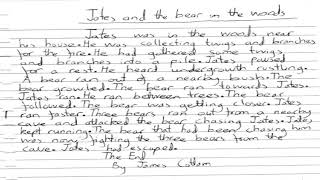 Jates and the bear in the woods
Jates was in the woods near
his house. He was collecting twigs and branches
for the fire. He had gathered some twigs
and branches into a pile. Jates paused
for a rest. He heard undergrowth rustling.
A bear ran out of a nearby bush. The
bear growled. The bear ran towards Jates.
Jates ran. He ran between trees. The bear
followed. The bear was getting closer. Jates
ran faster. Three bears ran out from a nearby
cave and attacked the bear chasing Jates. Jates
kept running. The bear that had been chasing him
was now fighting the three bears from the
cave. Jates had escaped.
The End
By James